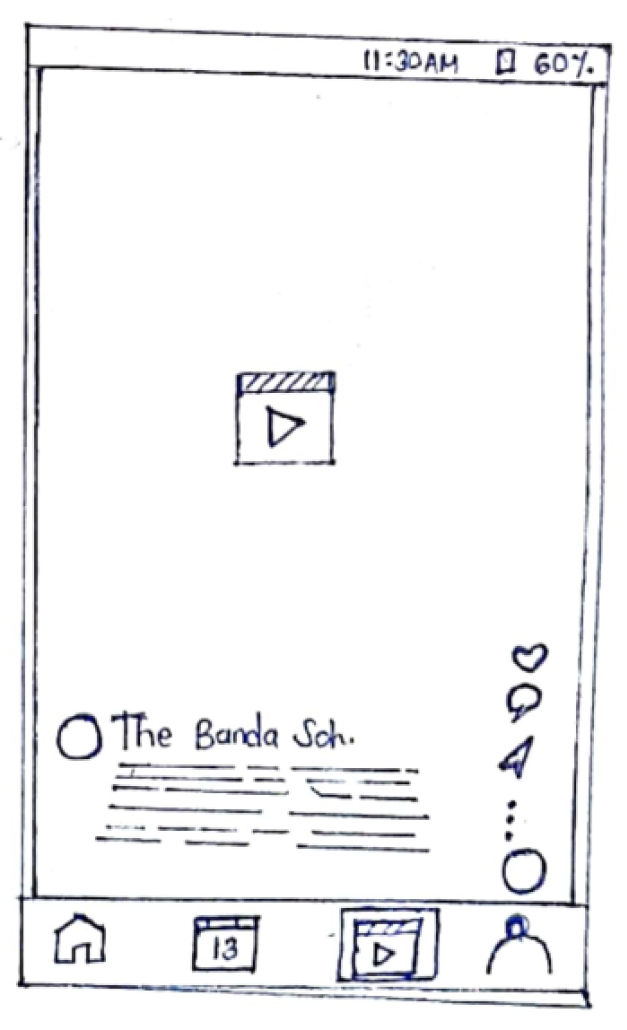 11:30AM 60%
The Banda Sch.
13